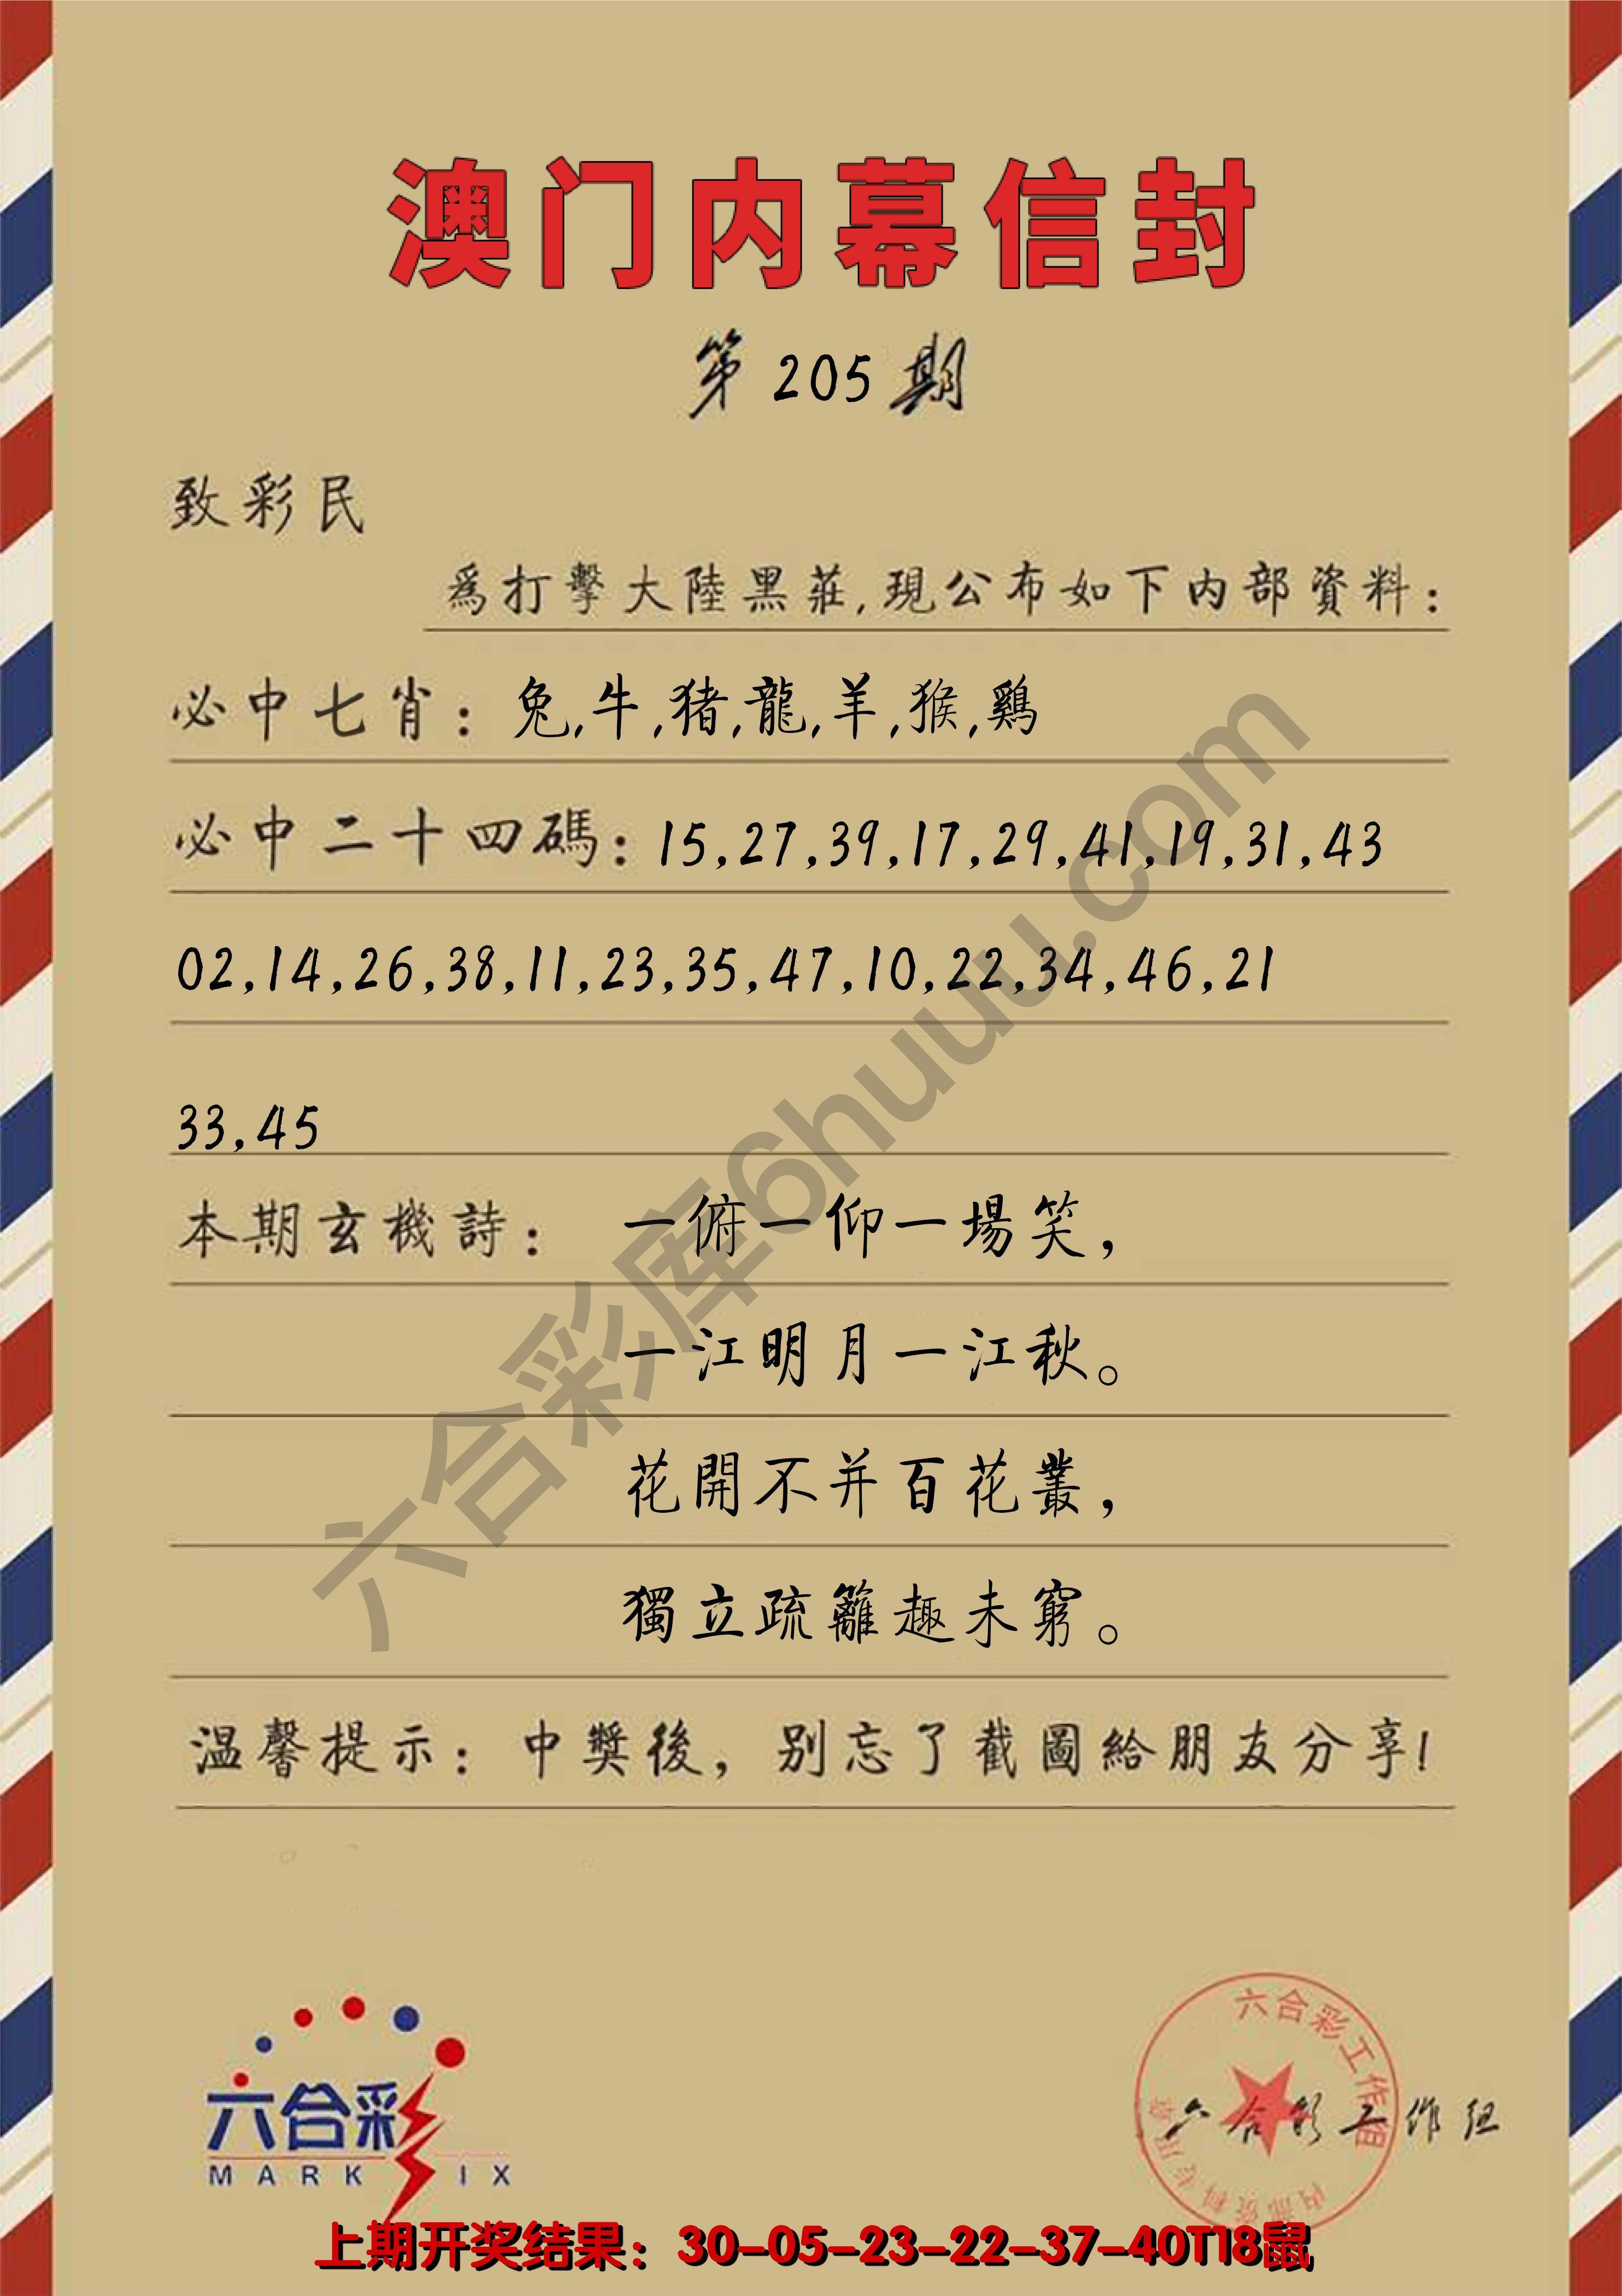 澳门内幕信封
第205期
致彩民
爲打擊大陸黑莊,現公布如下内部資料:
必中七肖: 兔,牛,猪,龍,羊,猴,鷄
必中二十四碼: 15,27,39,17,29,41,19,31,43
02,14,26,38,11,23,35,47,10,22,34,46,21
33,45
本期玄機詩: 一俯一仰一場笑,
一江明月一江秋。
花開不并百花叢,
獨立疏籬趣未窮。
温馨提示: 中獎後, 别忘了截圖給朋友分享!
六合彩库6huuu.com
六合彩
MARK IX
六合彩工作组
内部资料专用章
六合彩工作组
上期开奖结果: 30-05-23-22-37-40T18鼠